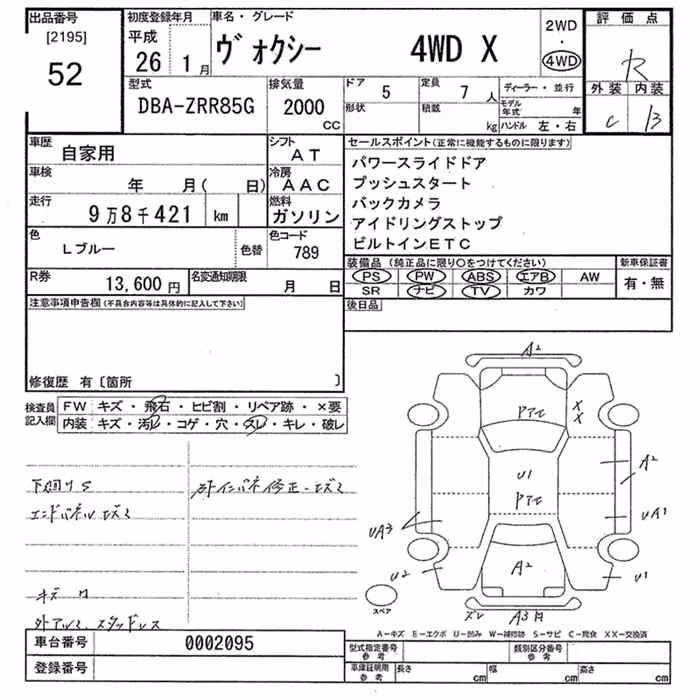 出品番号
[2195]
52
初度登録年月
平成
26 1月
車名・グレード
ヴォクシー 4WD X
2WD
・
4WD
評価点
R
外装 内装
C B
型式
DBA-ZRR85G
排気量
2000
CC
ドア 5
定員 7人
形状
積載 kg
ディーラー・並行
モデル年式 年
ハンドル 左・右
車歴
自家用
シフト
AT
車検
年 月( 日)
冷房
AAC
走行
9万8千421 km
燃料
ガソリン
色
Lブルー
色替
色コード
789
R券
13,600円
名変通知期限
月 日
セールスポイント(正常に機能するものに限ります)
パワースライドドア
プッシュスタート
バックカメラ
アイドリングストップ
ビルトインETC
装備品(純正品に限り○をつけてください)
PS PW ABS エアB AW
SR ナビ TV カワ
新車保証書
有・無
後日品
注意事項申告欄(不具合内容等は具体的に記入して下さい)
修復歴 有〔箇所 〕
検査員
記入欄
FW キズ・飛石・ヒビ割・リペア跡・×要
内装 キズ・汚れ・コゲ・穴・スレ・キレ・破レ
下廻りS
エンドパネルエズミ
キズ
外アルミ、スタッドレス
A2
X
X
U1
A2
UA1
UA3
U2
A2
U1
スペア
ズレ
A3
A-キズ E-エクボ U-凹み W-補修跡 S-サビ C-腐食 XX-交換済
車台番号
0002095
登録番号
型式指定番号
参考
類別区分番号
参考
車庫証明用
参考
長さ cm
幅 cm
高さ cm